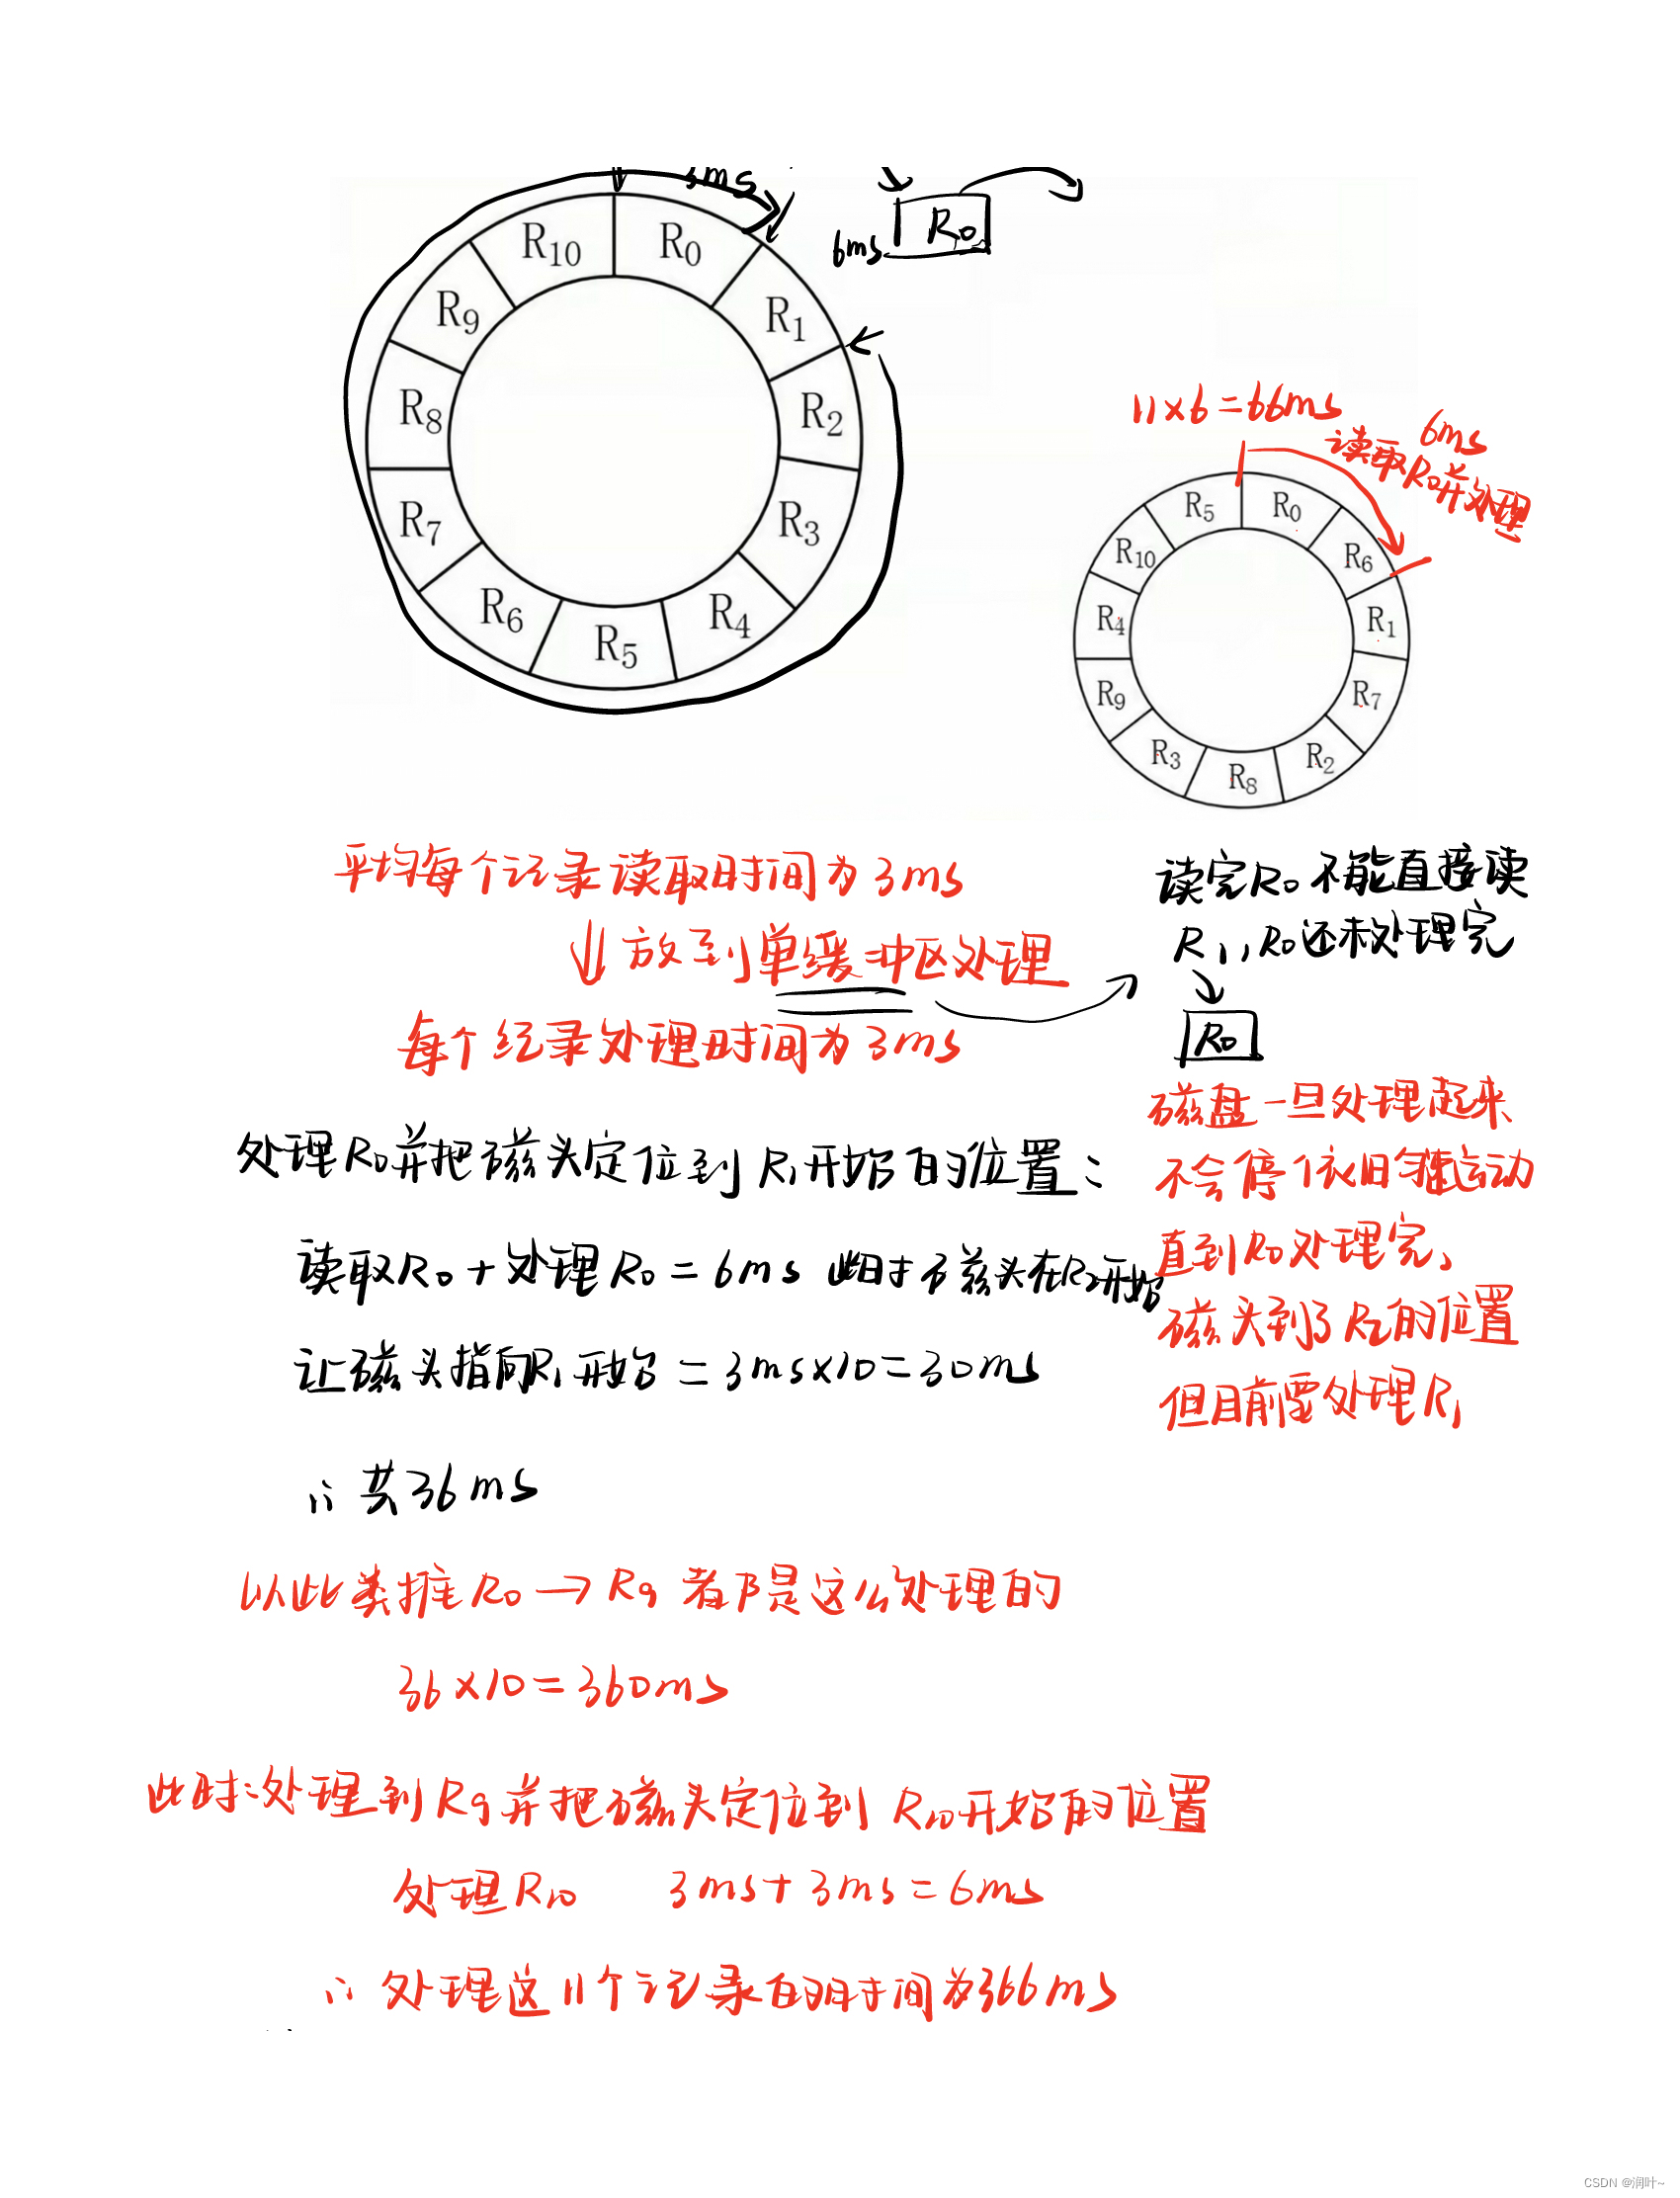 3ms
R0
6ms
R10 R0
R9 R1
R8 R2
R7 R3
R6 R5 R4
11×6=66ms
6ms
读取R0并处理
R5 R0
R10 R6
R4 R1
R9 R7
R3 R8 R2
平均每个记录读取时间为3ms
↓放到单缓冲区处理
每个纪录处理时间为3ms
读完R0不能直接读
R1,R0还未处理完
R0
磁盘一旦处理起来
不会停依旧匀速运动
直到R0处理完,
磁头到了R2的位置
但目前要处理R1
处理R0并把磁头定位到R1开始的位置:
读取R0+处理R0=6ms 此时磁头在R2开始
让磁头指向R1开始=3ms×10=30ms
∴共36ms
以此类推R0→R9都是这么处理的
36×10=360ms
此时:处理到R9并把磁头定位到R10开始的位置
处理R10 3ms+3ms=6ms
∴处理这11个记录的时间为366ms
CSDN @润叶~